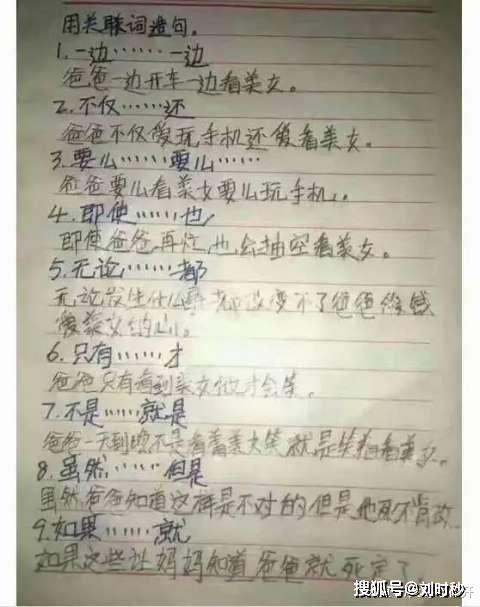 用关联词造句。
1.一边……一边
爸爸一边开车一边看美女。
2.不仅……还
爸爸不仅爱玩手机还爱看美女。
3.要么……要么……
爸爸要么看美女要么玩手机。
4.即使……也
即使爸爸再忙,也会抽空看美女。
5.无论……都
无论发生什么事都改变不了爸爸
爱美女的心。
6.只有……才
爸爸只有看到美女他才会笑。
7.不是……就是
爸爸一天到晚不是看着美女笑就是笑着看美女。
8.虽然……但是
虽然爸爸知道这样是不对的但是他死不肯改
9.如果……就
如果这些让妈妈知道爸爸就死定了
搜狐号@刘时秒